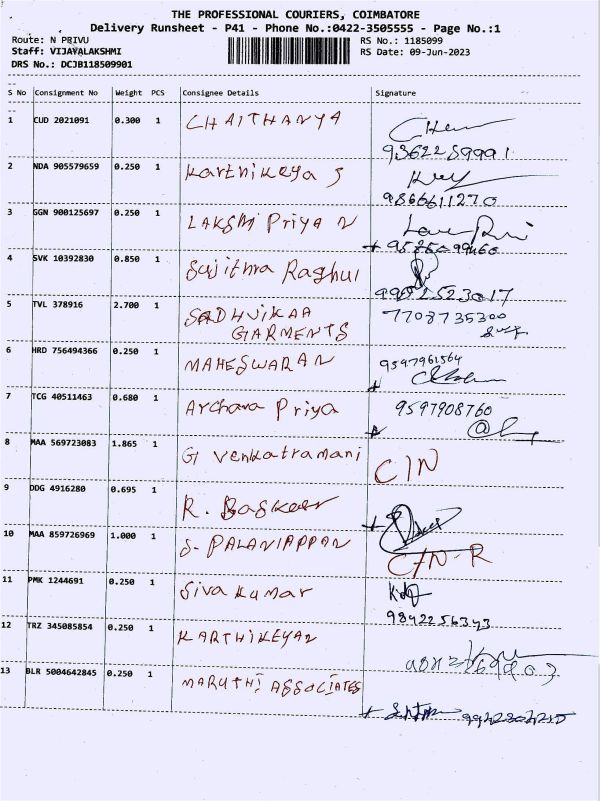 THE PROFESSIONAL COURIERS, COIMBATORE
Delivery Runsheet - P41 - Phone No.:0422-3505555 - Page No.:1
Route: N PRIVU
RS No.: 1185099
Staff: VIJAYALAKSHMI
RS Date: 09-Jun-2023
DRS No.: DCJB118509901
S No Consignment No Weight PCS Consignee Details Signature
1 CUD 2021091 0.300 1 CHAITHANYA
9362289991
2 NDA 905579659 0.250 1 Karthikeya S
9866611270
3 GGN 900125697 0.250 1 LAKSHMI PRIYA N
4 SVK 10392830 0.850 1 Sujithra Raghul
5 TVL 378916 2.700 1 SADHVIKAA 7708735300
GARMENTS
6 HRD 756494366 0.250 1 MAHESWARAN 9597961564
7 TCG 40511463 0.680 1 Archana Priya 9597908760
8 MAA 569723083 1.865 1 G Venkatramani C/N
9 DDG 4916280 0.695 1 R. Baskeer
10 MAA 859726969 1.000 1 S. PALANIAPPAN C/N-R
11 PMK 1244691 0.250 1 Siva Kumar
9842256343
12 TRZ 345085854 0.250 1 KARTHIKEYAN
13 BLR 5004642845 0.250 1 MARUTHI ASSOCIATES